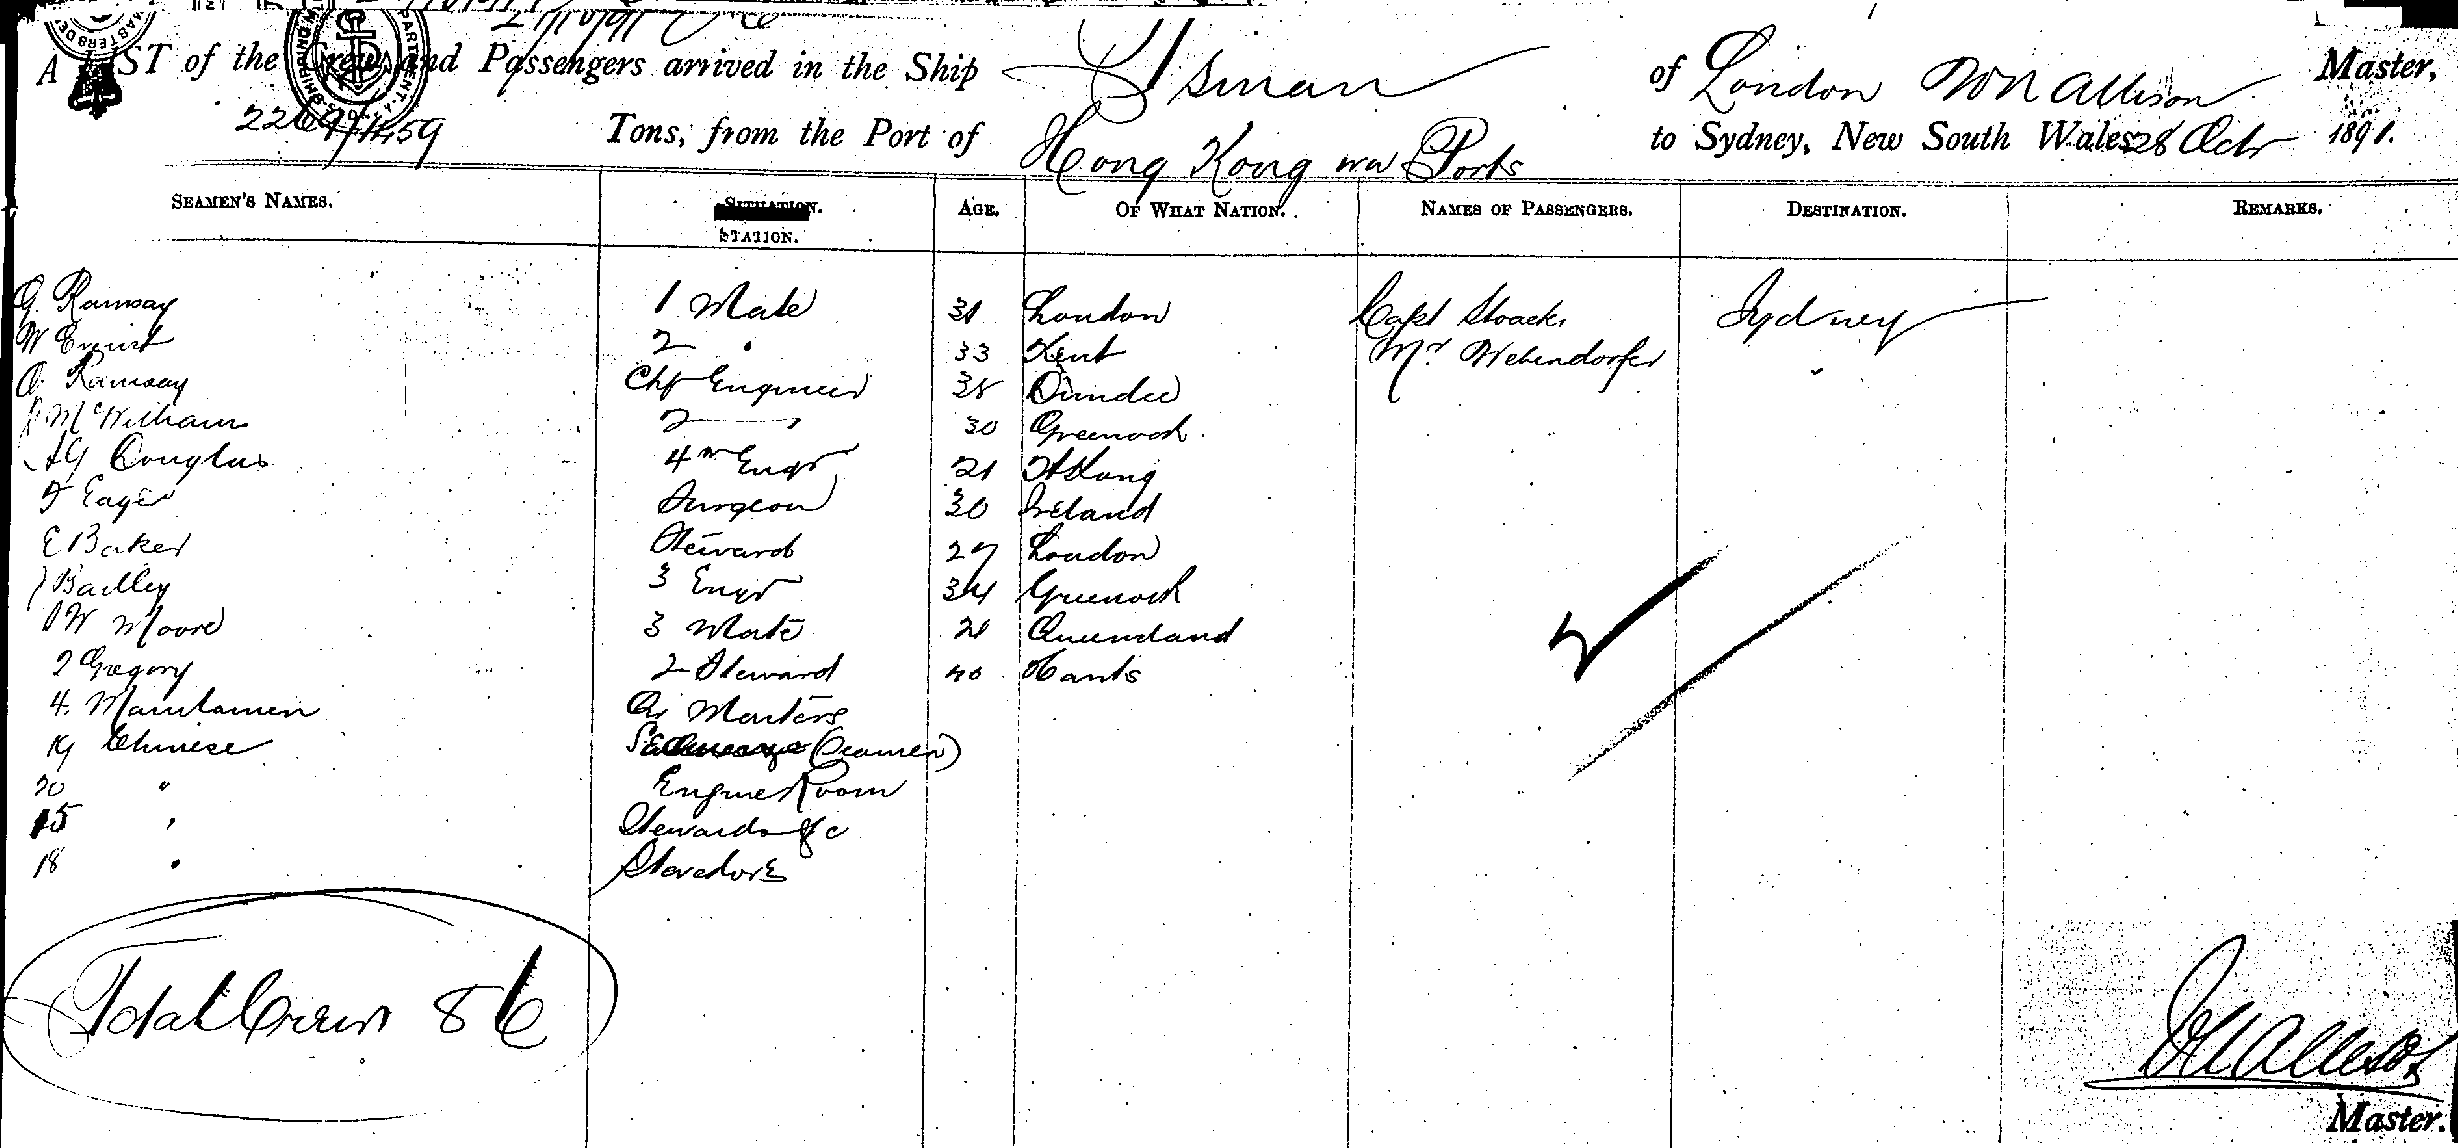 A LIST of the Crews and Passengers arrived in the Ship Tsinan of London Allison Master,
2269/1459 Tons, from the Port of Hong Kong Ports to Sydney, New South Wales 28 Octr 1891.
SEAMEN'S NAMES. STATION. AGE. OF WHAT NATION. NAMES OF PASSENGERS. DESTINATION. REMARKS.
G. Ramsay 1 Mate 31 London Capt Sydney
W 2 " 33 Kent Mr
Ramsay Chf Engineer Dundee
McWilliam 2 " 30 Greenock
AG Douglas 4th Engr 21 HKong
Eager Surgeon 30 Ireland
E Baker Steward 27 London
J Bailley 3 Engr 34 Greenock
W Moore 3 Mate 21 Queensland
Gregory 2 Steward 40 Hants
4. Manilamen Qr Masters
19 Chinese (Seamen)
20 " Engine Room
15 " Stewards &c
18 " Stevedore
Total Crew 86
Allison
Master.